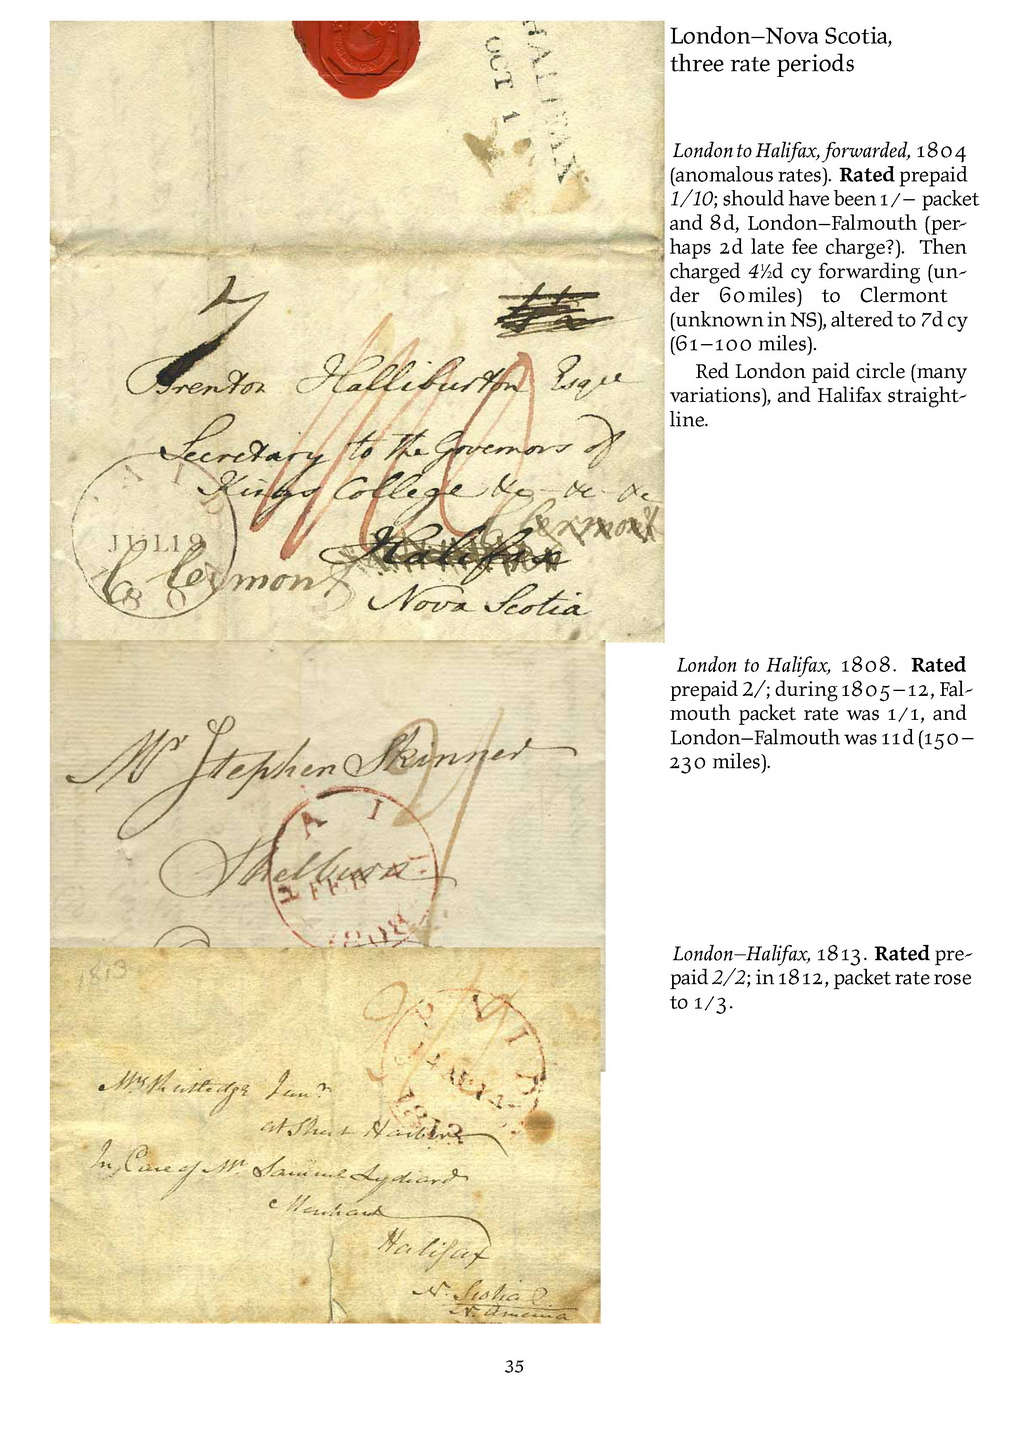 London–Nova Scotia,
three rate periods
London to Halifax, forwarded, 1804
(anomalous rates). Rated prepaid
1/10; should have been 1/– packet
and 8d, London–Falmouth (per-
haps 2d late fee charge?). Then
charged 4½d cy forwarding (un-
der 60miles) to Clermont
(unknown in NS), altered to 7d cy
(61–100 miles).
Red London paid circle (many
variations), and Halifax straight-
line.
HALIFAX
OCT 1
7
Brenton Halliburton Esqre
Secretary to the Governors of
Kings College &c &c &c
Clermont
Halifax
Clermont
Nova Scotia
PAID
JUL19
180
London to Halifax, 1808. Rated
prepaid 2/; during 1805–12, Fal-
mouth packet rate was 1/1, and
London–Falmouth was 11d (150–
230 miles).
Mr Stephen Skinner
Shelburn
2/
PAID
FEB
1808
London–Halifax, 1813. Rated pre-
paid 2/2; in 1812, packet rate rose
to 1/3.
1813
PAID
1813
Mrs Rutledge Junr
at Sheet Harbour
In Care of Mr Samuel Lydiard
Merchant
Halifax
N. Scotia
N. America
35